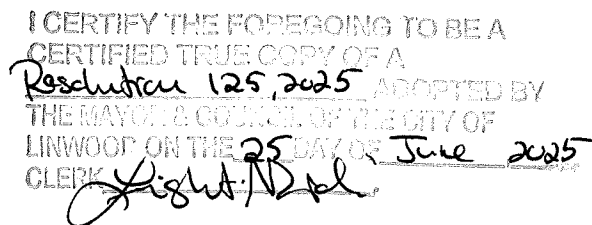 I CERTIFY THE FOREGOING TO BE A
CERTIFIED TRUE COPY OF A
Resolution 125, 2025 ADOPTED BY
THE MAYOR & COUNCIL OF THE CITY OF
LINWOOD ON THE 25 DAY OF June 2025
CLERK